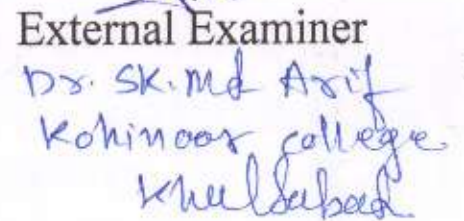 External Examiner
Dr. SK. Md Arif
Kohinoor college
Khuldabad